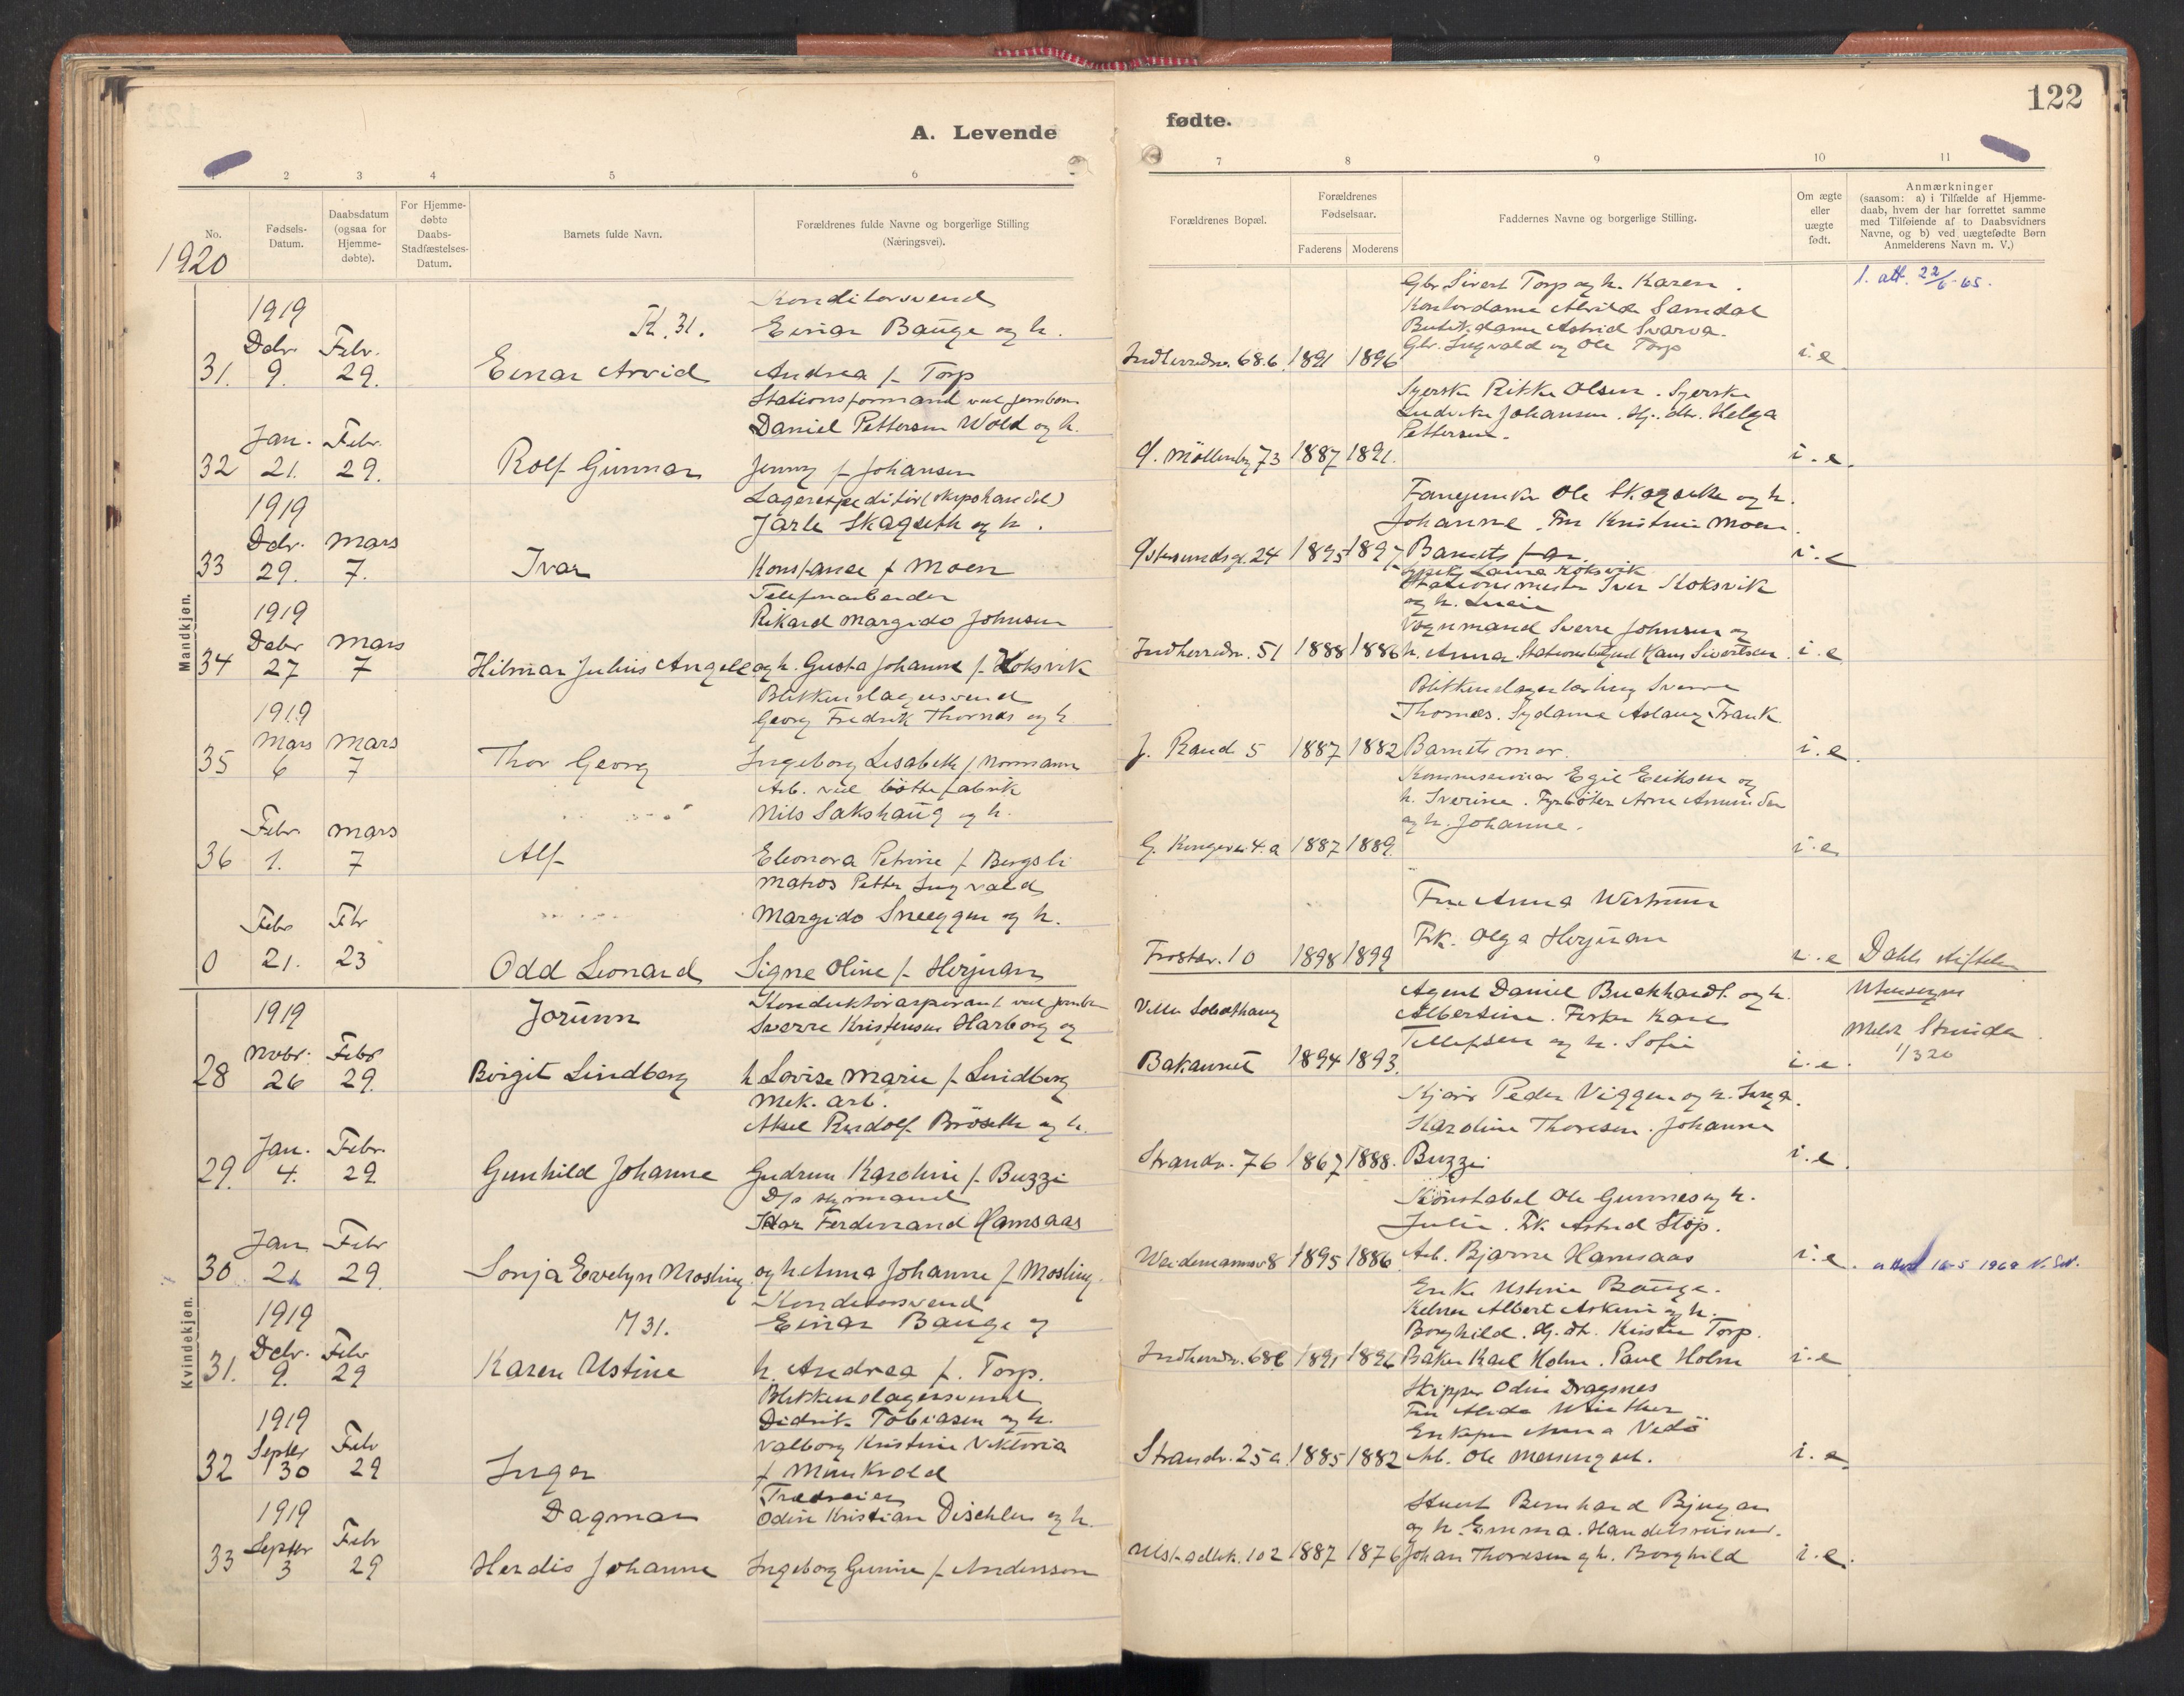 122
A. Levende
fødte.
1 2 3 4 5 6
7 8 9 10 11
No.
Fødsels-
Datum.
Daabsdatum
(ogsaa for
Hjemme-
døbte).
For Hjemme-
døbte
Daabs-
Stadfæstelses-
Datum.
Barnets fulde Navn.
Forældrenes fulde Navne og borgerlige Stilling
(Næringsvei).
Forældrenes Bopæl.
Forældrenes
Fødselsaar.
Faderens Moderens
Faddernes Navne og borgerlige Stilling.
Om ægte
eller
uægte
født.
Anmærkninger
(saasom: a) i Tilfælde af Hjemme-
daab, hvem der har forrettet samme
med Tilføiende af to Daabsvidners
Navne, og b) ved uægtefødte Børn
Anmelderens Navn m. V.)
1920
Mandkjøn.
31.
1919
Debr.
9.
Febr.
29.
K. 31.
Einar Arvid
Konditorsvend
Einar Bauge og h.
Andrea f. Torp
Indherredsv. 68.b 1891 1896
Gbr Sivert Torp og h. Karen.
Kontordame Alvilde Samdal
Butikdame Astrid Svarva.
Gbr. Ingvald og Ole Torp
i. e
1. att. 22/6-65.
32
Jan.
21.
Febr.
29.
Rolf Gunnar
Stationsformand ved jernban
Daniel Pettersen Wold og h.
Jenny f. Johansen
Ø. Møllenbg 73 1887 1891.
Syerske Rikke Olsen. Syerske
Ludvika Johansen. Hj. dtr. Helga
Pettersen.
i. e.
33
1919
Debr.
29.
Mars
7.
Ivar
Lagerexpeditør (skipshandel)
Jarle Skagseth og h.
Konstanse f Moen
Østersundsg. 24 1895 1897
Ole Skagseth og h.
Johanne. Fru Kristine Moen.
Barnets far.
i. e
34
1919
Debr
27
Mars
7
Hilmar Julius Angell
Telefonarbeider
Rikard Margido Johnsen
og h. Gusta Johanne f. Koksvik
Indherredsv. 51 1888 1886
Laura Koksvik
Stationsmester Iver Koksvik
og h.
Vognmand Sverre Johnsen og
h. Anna. Hans Sivertsen
i. e
35
1919
Mars
6
Mars
7
Thor Georg
Blikkenslagersvend
Georg Fredrik Thornes og h
Ingeborg Lisabeth f. Normann
J. Rand 5 1887 1882
Blikkenslagerlærling Sverre
Thornes. Sydame Aslaug Frank
Barnets mor.
i. e
36
Febr
1.
Mars
7
Alf
Arb. ved bøttefabrik
Nils Sakshaug og h.
Eleonora Petrine f. Bergsli
G. Kongevei 4.a 1887 1889.
Egil Eriksen og
h. Iverine. Fyrbøter Arne Amundsen
og h. Johanne.
i. e
0
Febr
21.
Fbr
23
Odd Leonard
Matros Petter Ingvald
Margido Sneeggen og h.
Signe Oline f. Herjuan
Frostav. 10 1898 1899
Fru Anna
Frk. Olga Herjuan
i. e
Dahls Stiftelse
Kvindekjøn.
28
1919
Novbr.
26
Febr
29.
Jorunn
Birgit Lindberg
Konduktøraspirant ved jernb.
Sverre Kristensen Harborg og
h Lovise Marie f. Lindberg
Bakaunet 1894 1893.
Agent Daniel Buckhardt og h.
Albertine. Fisker Kare
Tellefsen og h. Sofie
i. e.
Utensogns
Meldt Strinda
1/3 20
29.
Jan.
4.
Febr.
29
Gunhild Johanne
Mek. arb.
Aksel Rudolf Brøseth og h.
Gudrun Karoline f. Buzzi
Strandv. 76 1867 1888.
Peder Viggen og h. Inga.
Karoline Thoresen. Johanna
Buzzi
i. e.
30
Jan
21
Febr
29.
Sonja Evelyn Mosling
D/s styrmand
Ivar Ferdinand Hamsaas
og h Anna Johanne f Mosling.
Weidemannsv 8 1895 1886
Konstabel Ole Gunnes og h.
Julie. Frk. Astrid Støp.
Arb. Bjarne Hamsaas
i. e.
attest 16-5 1969
31.
1919
Debr.
9.
Febr
29
M 31.
Karen Ustine
Konditorsvend
Einar Bauge og
h. Andrea f. Torp.
Indherredsv. 68b 1891 1896
Enke Ustine Bauge.
Kelner Albert og h.
Borghild. Hj. dtr. Kirsten Torp.
Baker Karl Holm. Paul Holm
i. e
32
1919
Septbr
30
Febr
29
Inger
Blikkenslagersvend
Didrik Tobiasen og h.
Valborg Kristine Viktoria
f Munkvold
Strandv. 25 a. 1885 1882
Skipper Odin Dragsnes
Fru Alida Winther
Enkefru Anna Vedø
Arb. Ole
i. e
33
1919
Septbr
3
Febr
29
Dagmar
Herdis Johanne
Trædreier
Odin Kristian Dischler og h.
Ingeborg Gunine f. Andersson
102 1887 1876
Stuert Bernhard Bjugan
og h. Emma. Handelsreisend.
Johan Thoresen og h. Borghild
i. e.